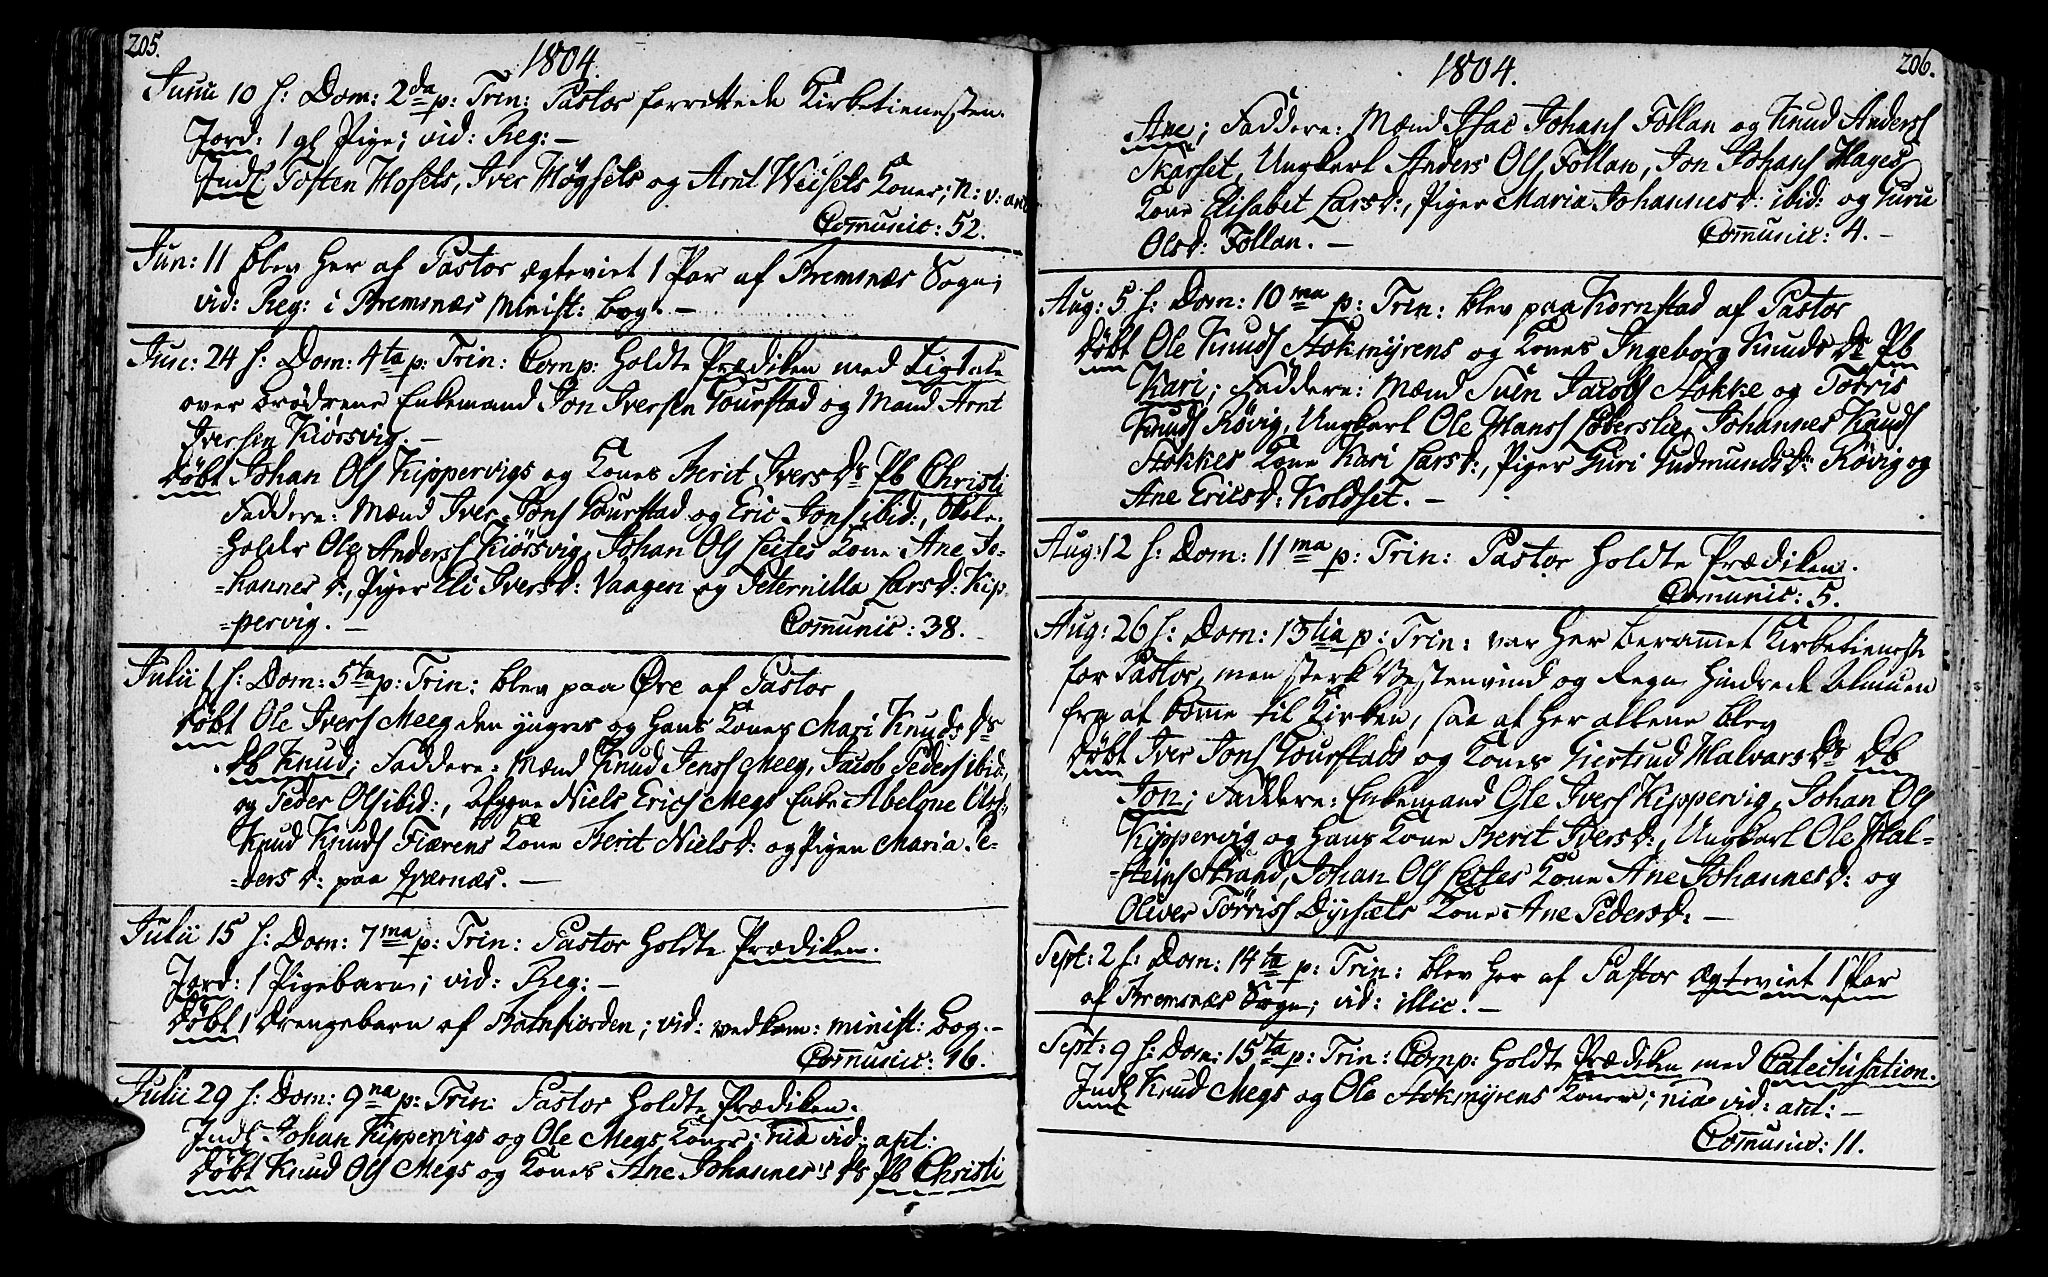 205.
1804.
Junii 10 h: Dom: 2da p: Trin: Pastor forrettede Kirketienesten.
Jord: 1 gl Pige; vid: Reg: —
Indl Tosten Hosets, Iver Høgsets og Arnt Weisets Koner; n: v: ant
Comunic: 52.
Jun: 11 blev her af Pastor ægteviet 1 Par af Bremsnæs Sogn;
vid: Reg: i Bremsnæs Minist: bog. —
Jun: 24 h: Dom: 4ta p: Trin: Comp: holdte Prædiken med Ligtale
over brødrene Enkemand Jon Iversen Tourstad og Mand Arnt
Iversen Kiørsvig. —
Døbt Johan Ols Kippervigs og Kones Berit Ivers Dr Pb Christi
Faddere: Mænd Iver Jons Tourstad og Eric Jons ibid:, Skole-
=holder Ole Anders Kiørsvig, Johan Ols Leites Kone Ane Jo-
=hannes d:, Piger Eli Ivers d: Vaagen og Peternilla Lars d: Kip-
=pervig. —
Comunic: 38.
Julii 1 h: Dom: 5ta p: Trin: blev paa Øre af Pastor
Døbt Ole Ivers Meeg den yngres og hans Kones Mari Knuds Dr
Db Knud; Faddere: Mænd Knud Jens Meeg, Jacob Peders ibid:,
og Peder Ols ibid:, Afggne Niels Erics Megs Enke Abelone Olsd:,
Knud Knuds Fiærens Kone Berit Niels d: og Pigen Maria Pe-
=ders d: paa Qværnæs. —
Julii 15 h: Dom: 7ma p: Trin: Pastor holdte Prædiken.
Jord: 1 Pigebarn; vid: Reg: —
Døbt 1 Drengebarn af Batnfiorden; vid: vedkom: minist: bog. —
Comunic: 16.
Julii 29 h: Dom: 9na p: Trin: Pastor holdte Prædiken.
Indl Johan Kippervigs og Ole Megs Koner; vid: ant:
Døbt Knud Ols Megs og Kones Ane Johannes's Dr Pb Christi
206.
1804.
Ane; Faddere: Mænd Isac Johans Follan og Knud Anders
Skarset, Ungkarl Anders Ols Follan, Jon Johans Hages
Kone Elisabet Lars d:, Piger Maria Johannes d: ibid: og Guru
Ols d: Follan. —
Comunic: 4. —
Aug: 5 h: Dom: 10ma p: Trin: blev paa Kornstad af Pastor
Døbt Ole Knuds Stokmyrens og Kones Ingeborg Knuds Dr Pb
Kari; Faddere: Mænd Sven Jacobs Stokke og Torris
Knuds Røvig, Ungkarl Ole Hans Loberslie, Johannes Knuds
Stokkes Kone Kari Lars d:, Piger Guri Gudmunds d: Røvig og
Ane Erics d: Koldset. —
Aug: 12 h: Dom: 11ma p: Trin: Pastor holdte Prædiken.
Comunic: 5.
Aug: 26 h: Dom: 13tia p: Trin: var her berammet Kirketieneste
for Pastor, men sterk Vestenvind og Regn hindrede Almuen
fra at komme til Kirken, saa at her allene blev
Døbt Iver Jons Tourstads og Kones Giertrud Halvars Dr Db
Jon; Faddere: Enkemand Ole Ivers Kippervig, Johan Ols
Kippervig og hans Kone Berit Ivers d:, Ungkarl Ole Hal-
=steins Strand, Johan Ols Leites Kone Ane Johannes d: og
Oliver Tørris Dyrsæts Kone Ane Peders d: —
Sept: 2 h: Dom: 14ta p: Trin: blev her af Pastor Ægteviet 1 Par
af Bremsnæs Sogn; vid: illic. —
Sept: 9 h: Dom: 15ta p: Trin: Comp: holdte Prædiken med Catechisation.
Indl Knud Megs og Ole Stokmyrens Koner; vid: ant: —
Comunic: 11.